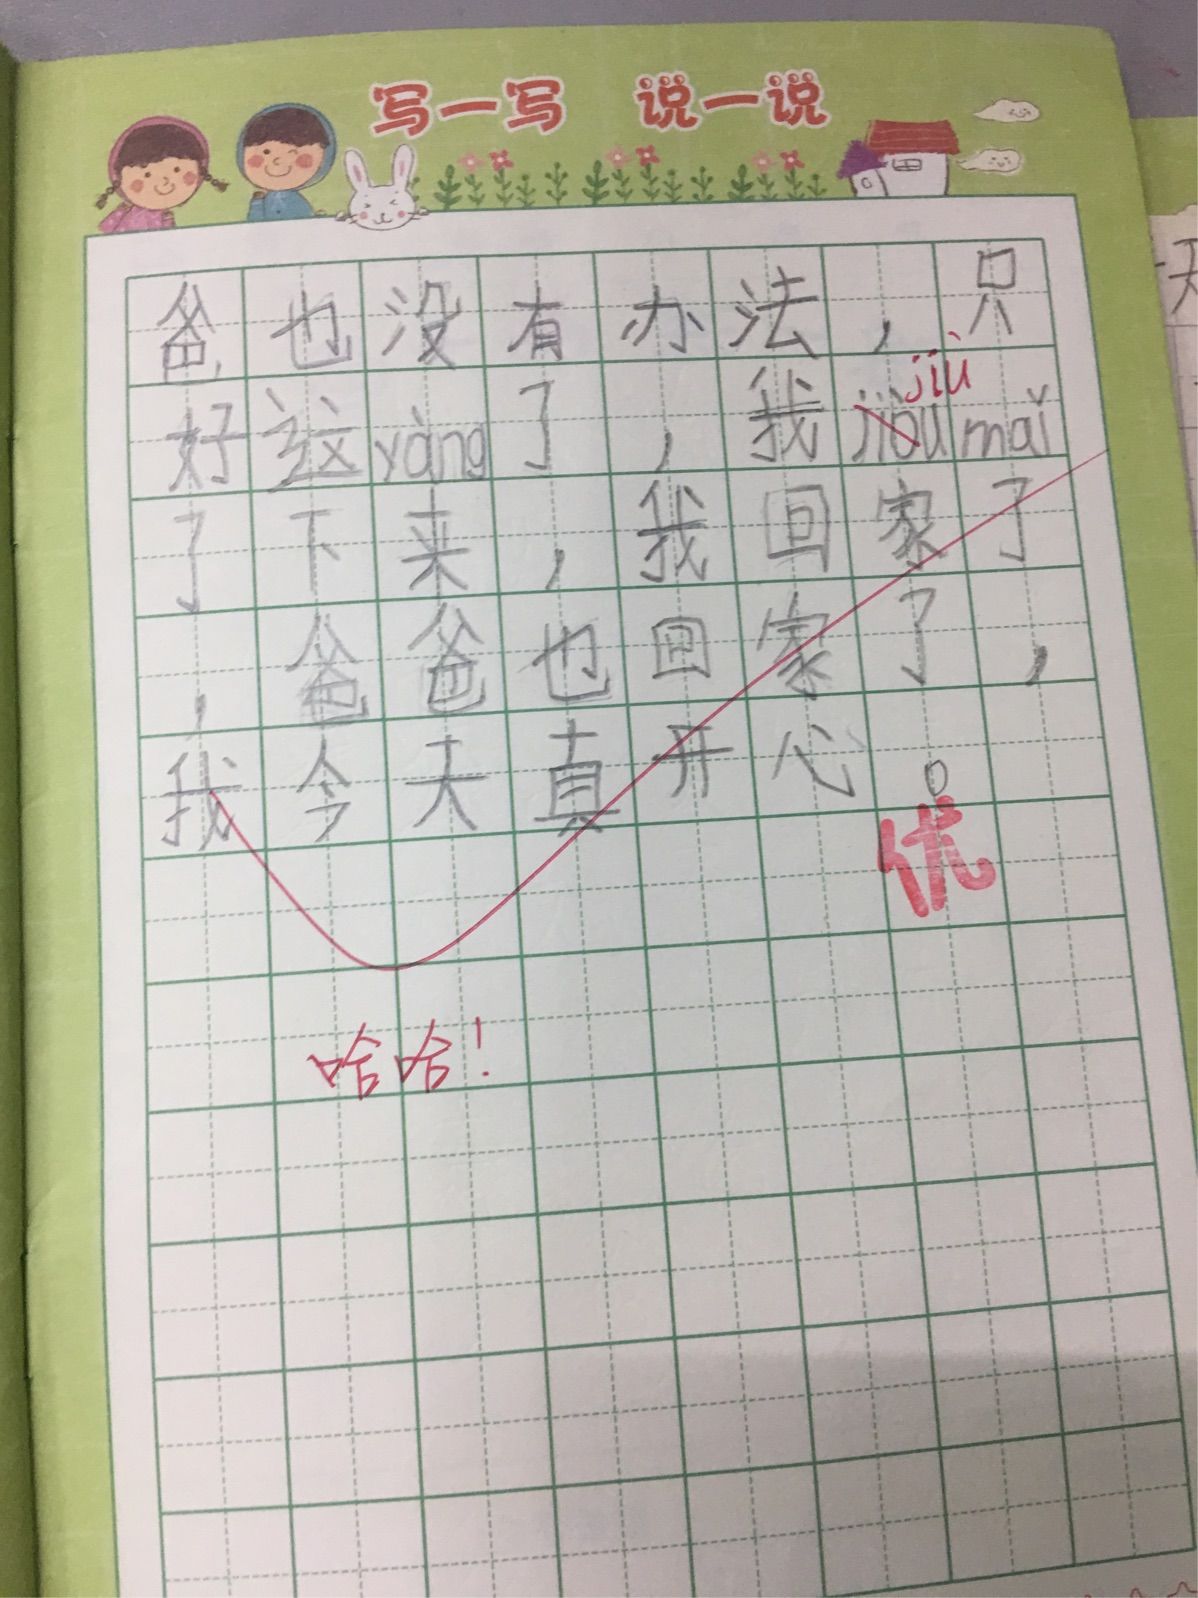 写一写 说一说
爸也没有办法，只
jiù
好这yàng了，我jiòu mǎi
了下来，我回家了
，爸爸也回家了，
我今天真开心。
优
哈哈！